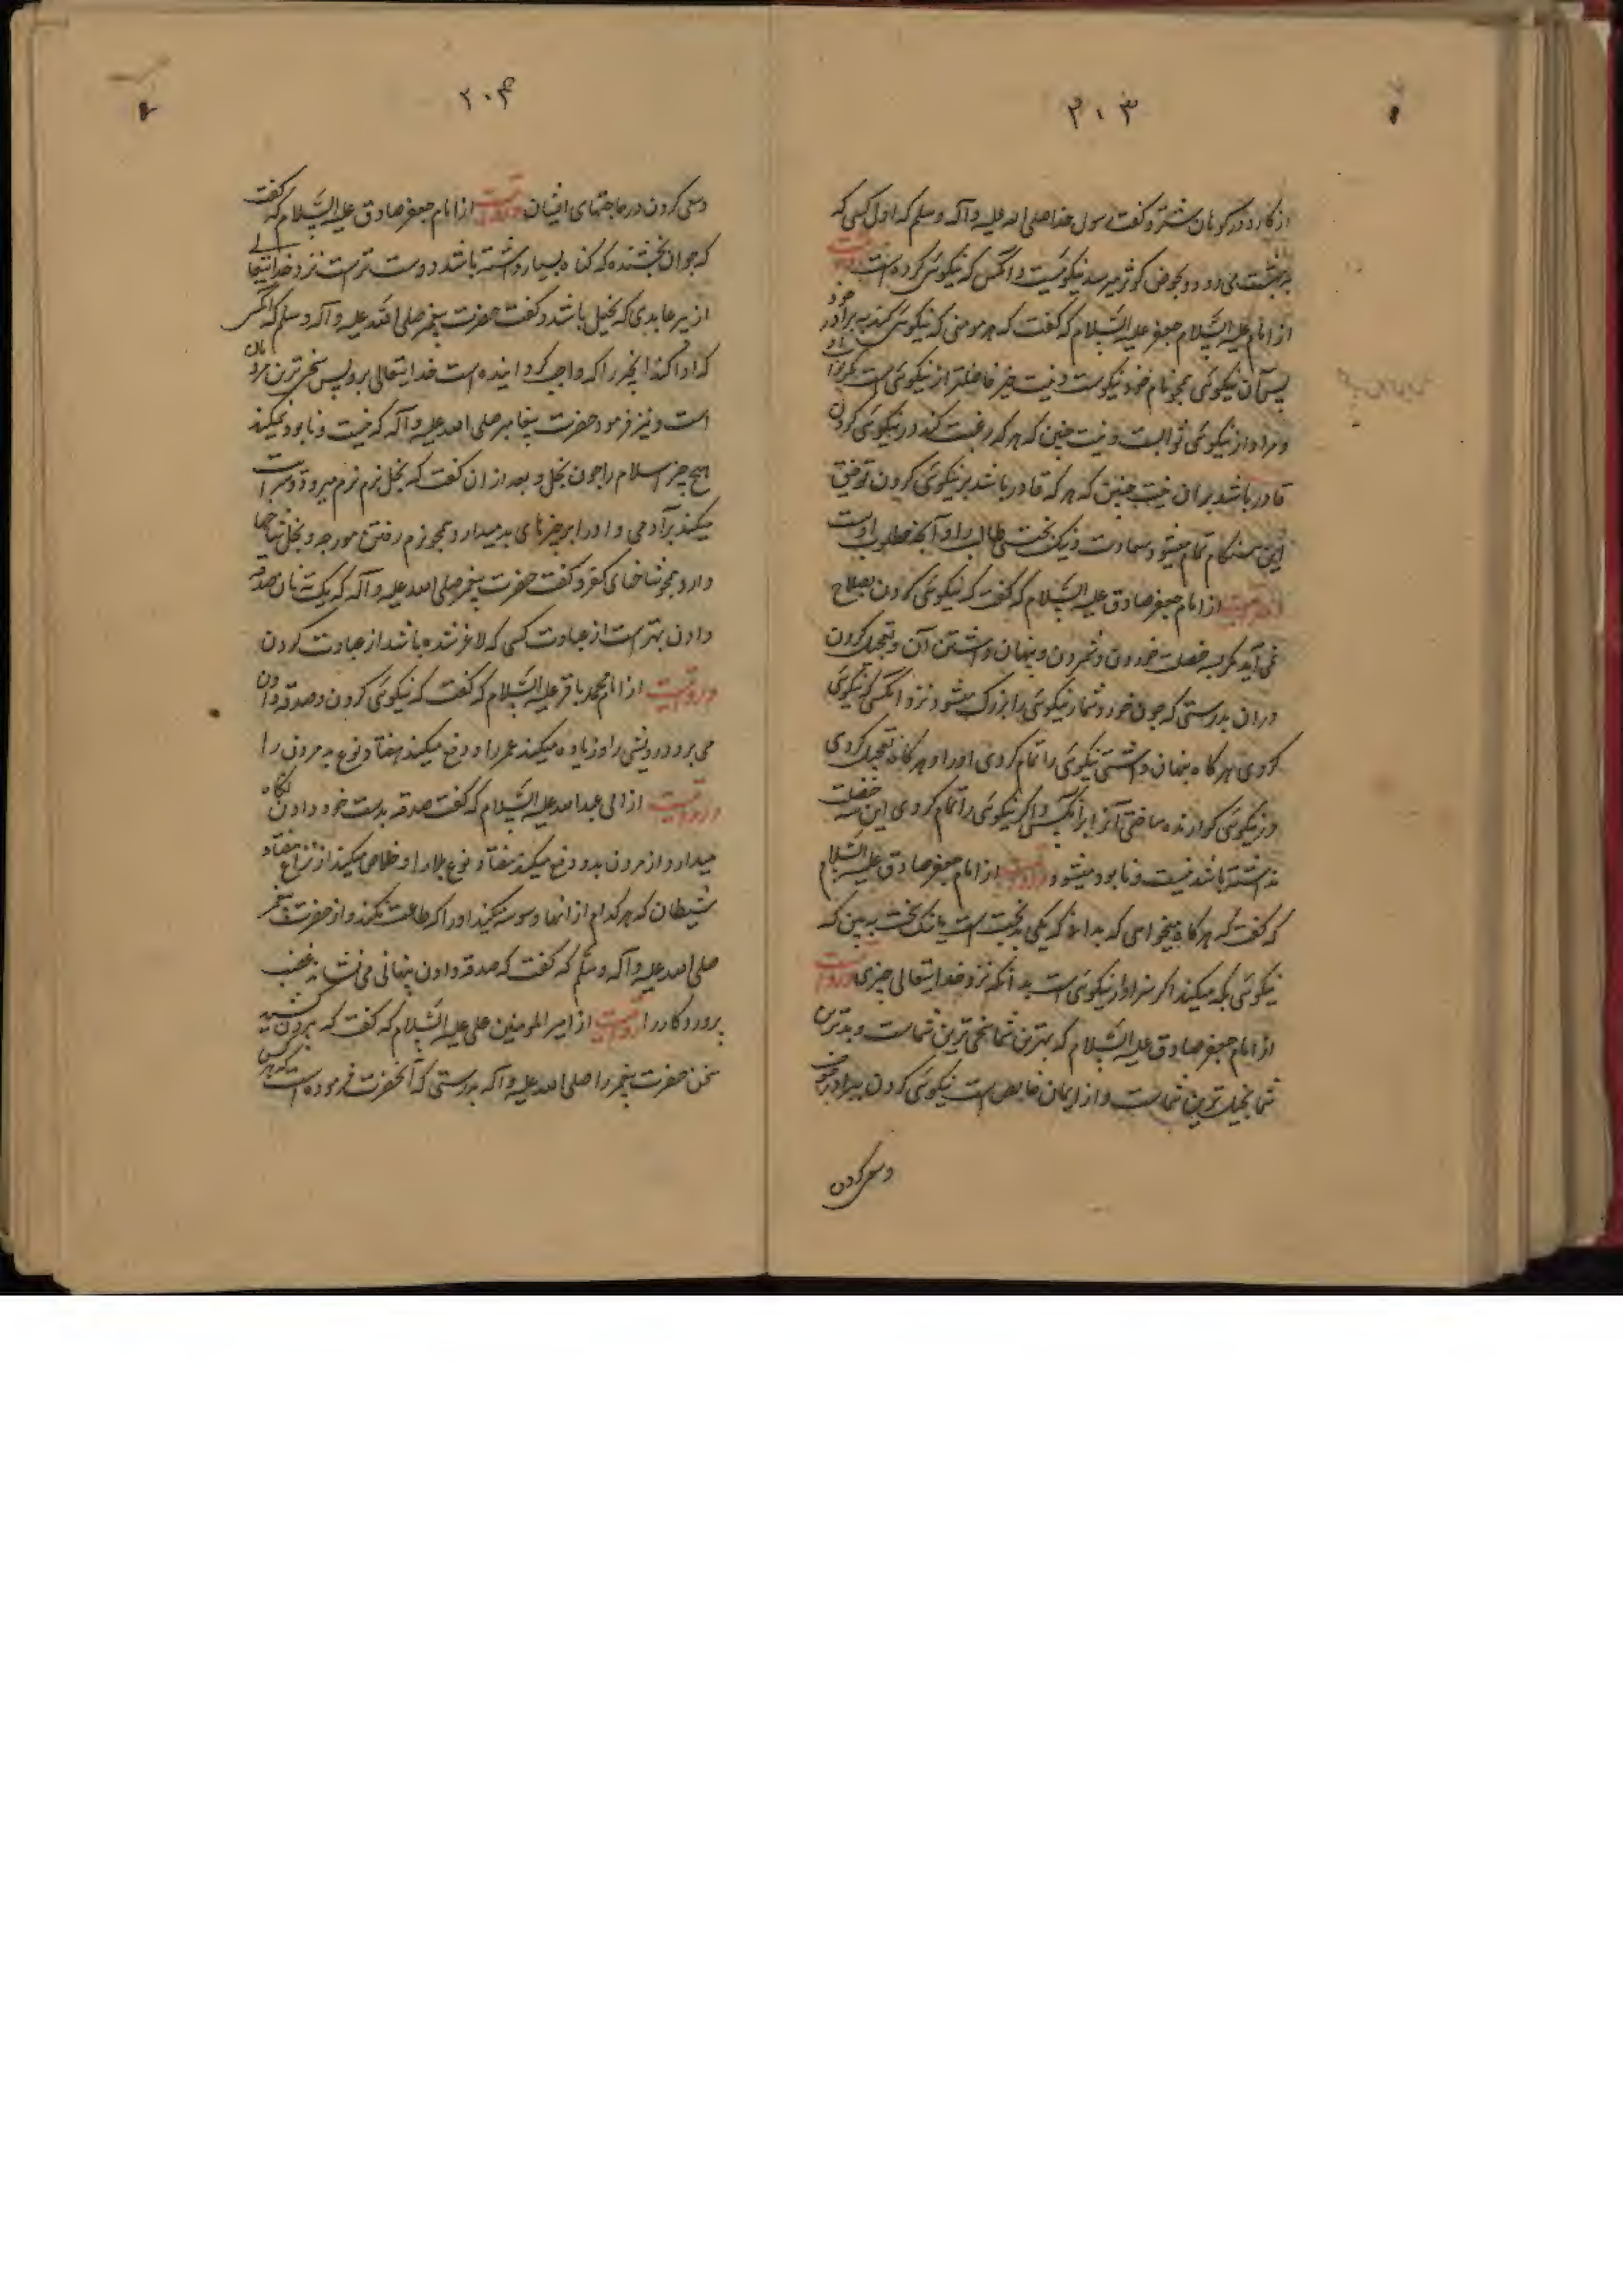 ۲۰۳
از کارد در کوهان شتر و کفت رسول خدا صلی الله علیه و آله وسلم که اول کسی که
به بهشت می رود و بحوض کوثر میرسد نیکوئیست و انکس که نیکوئی کرده است
از امام علیه السلام جعفر علیه السلام که کفت که هر مومنی که نیکوئی کند به برادر خود
پس آن نیکوئی همچو نام خود نیکوست و نیست چیز فاضلتر از نیکوئی است مکر ثواب او
و مراد از نیکوئی ثوابست و نیست چنین که هر که رغبت کند در نیکوئی کردن
قادر باشد بران نیست چنین که هر که قادر باشد بر نیکوئی کردن توفیق
این هنکام تمام میشود سعادت و نیک بختی طالب را و آنچه مطلوب اوست
از امام جعفر صادق علیه السلام که کفت که نیکوئی کردن بصلاح
نمی آید مکر بسه خصلت خورد شمردن و پنهان داشتن آن و تعجیل کردن
دران بدرستی که چون خورد شمار نیکوئی را بزرک میشود نزد انکسی که نیکوئی
کردی هر کاه پنهان داشتی نیکوئی را تمام کردی اورا و هر کاه تعجیل کردی
در نیکوئی کوارنده ساختی آنرا برانکس و اکر نیکوئی را تمام کردی این سه خصلت
نداشته باشد نیست و نابود میشود و روایت از امام جعفر صادق علیه السلام
که کفت که هر کاه میخواهی که بدانی که یکی بدبخت است یا نیک بخت ببین که
نیکوئی بکه میکند اکر سزاوار نیکوئی است بدانکه نزد خدایتعالی چیزی
از امام جعفر صادق علیه السلام که بهترین شما سخی ترین شماست و بدترین
شما بخیل ترین شماست و از ایمان خالص است نیکوئی کردن ببرادر
وسعی کردن
۲۰۴
وسعی کردن در حاجتهای ایشان مرویست از امام جعفر صادق علیه السلام که کفت
که جوان بخشنده که کناه بسیار داشته باشد دوست ترست نزد خدایتعالی
از پیر عابدی که بخیل باشد و کفت حضرت پیغمبر صلی الله علیه و آله وسلم که انکس
که ادا کند انچیز را که واجب کردانیده است خدایتعالی برو پس سخی ترین مردمان
است و نیز فرمود حضرت پیغامبر صلی الله علیه و آله که نیست و نابود نمیکند
هیچ چیز اسلام را چون بخل و بعد ازان کفت که بخل نرم نرم میرود و
میکند برآدمی و اورا بر چیزهای بد میدارد همچو نرم رفتن مورچه و بخل شاخها
دارد همچو شاخهای کفر و کفت حضرت پیغمبر صلی الله علیه و آله که یکته نان صدقه
دادن بهترست از عبادت کسی که لاغر شده باشد از عبادت کردن
مرویست از امام محمد باقر علیه السلام که کفت که نیکوئی کردن و صدقه دادن
می برد درویشی را و زیاده میکند عمر را و دفع میکند هفتاد نوع بد مردن را
مرویست از ابی عبدالله علیه السلام که کفت صدقه بدست خود دادن نکاه
میدارد از مردن بد و دفع میکند هفتاد نوع بلا را و خلاص میکند از نزاع هفتاد
شیطان که هر کدام از انها وسوسه میکند اورا که طاعت نکند و از حضرت پیغمبر
صلی الله علیه و آله وسلم که کفت که صدقه دادن پنهانی می نشاند غضب
پروردکار را مرویست از امیر المومنین علی علیه السلام که کفت که
سخن حضرت پیغمبر را صلی الله علیه و آله بدرستی که آنحضرت فرموده است که هر کس